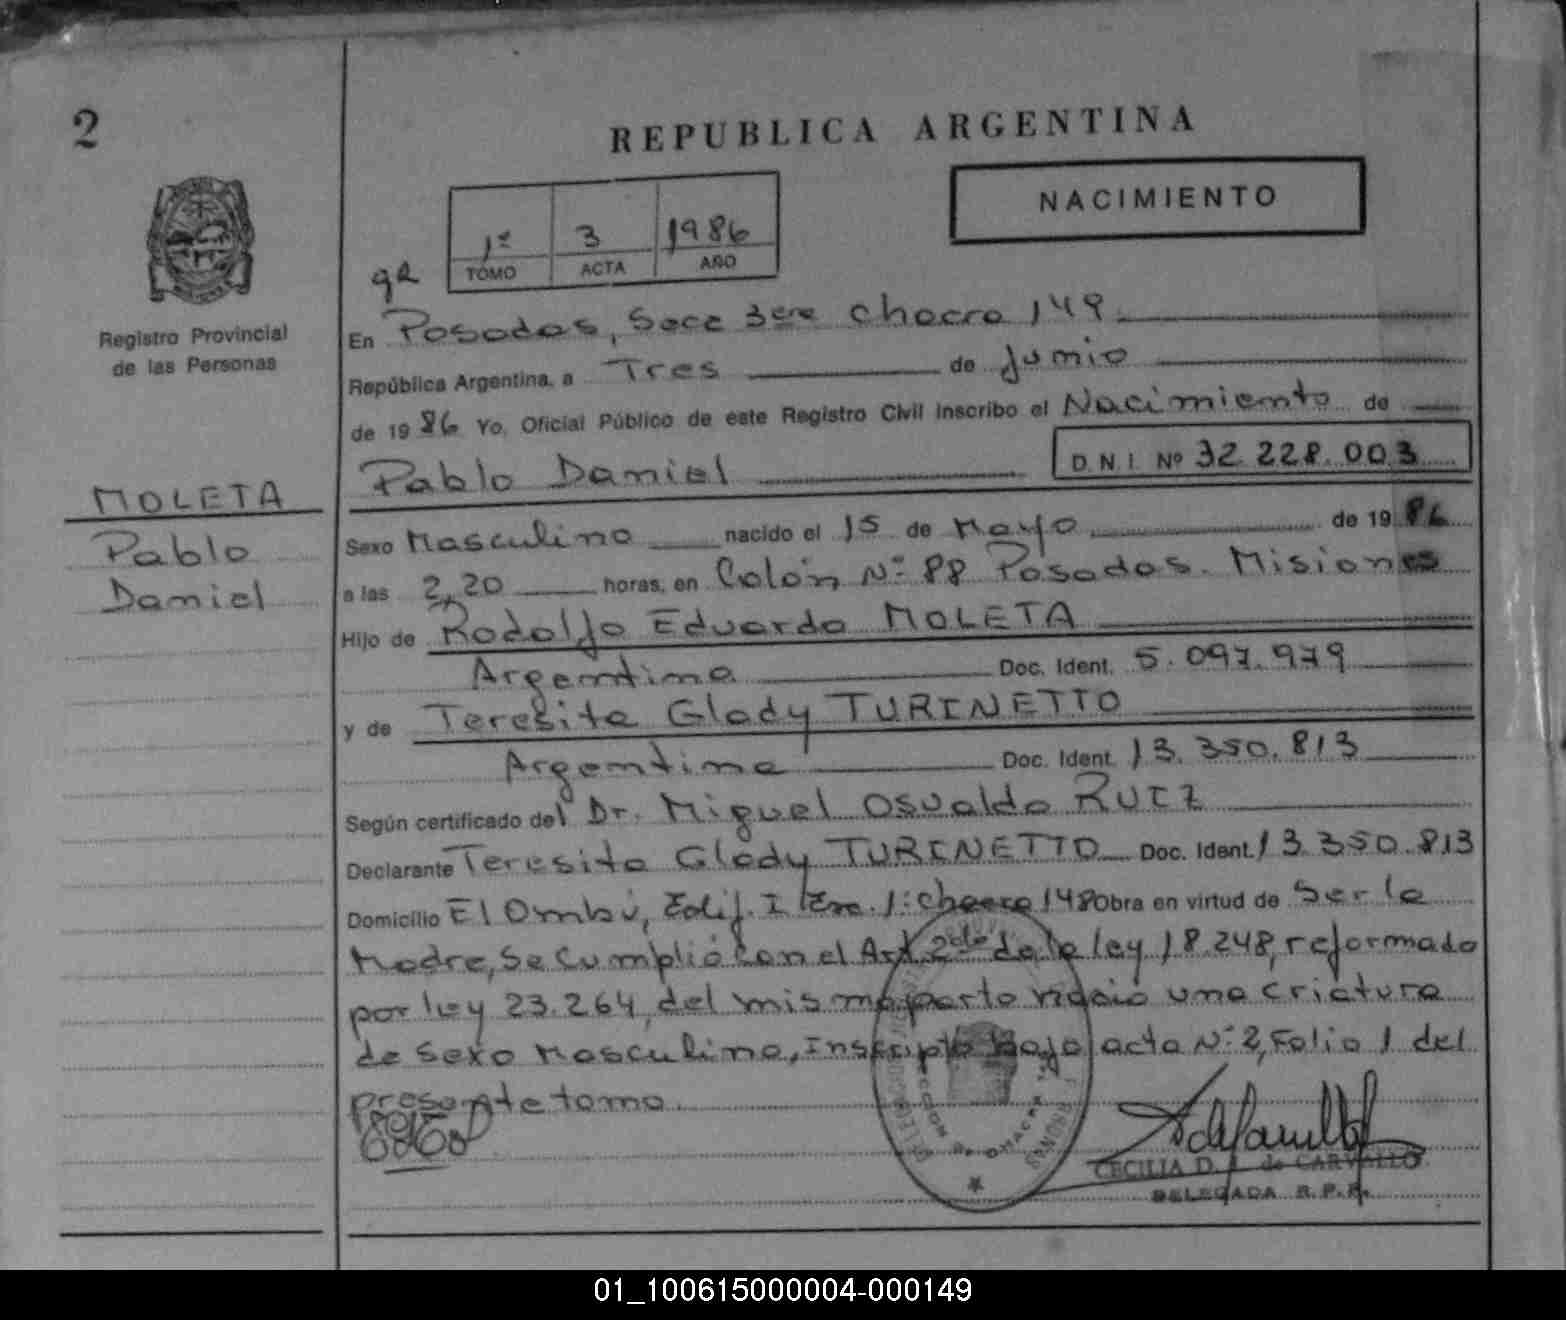 2
REPUBLICA ARGENTINA
NACIMIENTO
1º 3 1986
TOMO ACTA AÑO
Registro Provincial
de las Personas
En Posadas, Secc 3era Chacra 149
República Argentina, a Tres de Junio
de 1986 Yo, Oficial Público de este Registro Civil inscribo el Nacimiento de
Pablo Daniel D.N.I. Nº 32.228.003
MOLETA
Pablo
Daniel
Sexo Masculino nacido el 15 de Mayo de 1986
a las 2,20 horas, en Colón Nº 88 Posadas. Misiones
Hijo de Rodolfo Eduardo MOLETA
Argentina Doc. Ident. 5.097.979
y de Teresita Glady TURINETTO
Argentina Doc. Ident. 13.350.813
Según certificado del Dr. Miguel Osvaldo RUIZ
Declarante Teresita Glady TURINETTO Doc. Ident. 13.350.813
Domicilio El Ombú, Edif. I 1: chacra 148 Obra en virtud de Ser la
Madre, Se Cumplió Con el Art. 2do de la ley 18.248, reformado
por ley 23.264, del mismo parto nació una criatura
de Sexo Masculino, Inscripto bajo acta Nº 2, Folio 1 del
presente tomo.
CECILIA D. de CARVALLO
DELEGADA R.P.P.
01_100615000004-000149